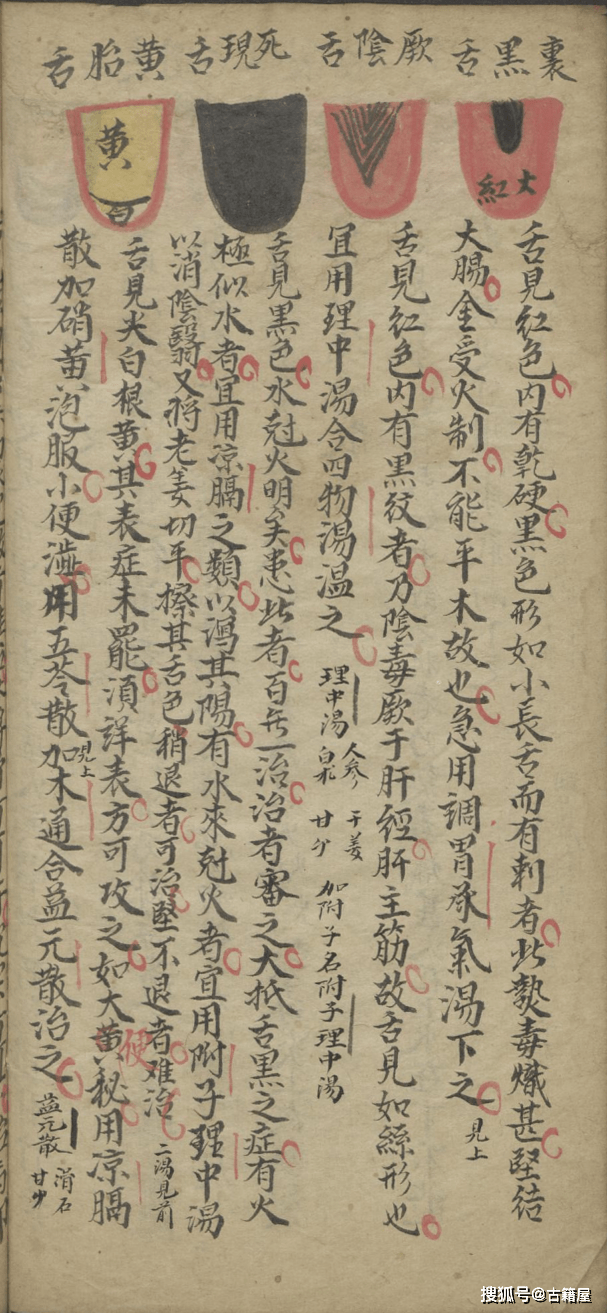 裏黑舌
厥陰舌
死現舌
黃胎舌
大紅
黃
白
舌見紅色内有乾硬黑色形如小長舌而有刺者此熱毒熾甚堅結
大腸金受火制不能平木故也急用調胃承氣湯下之見上
舌見紅色内有黑紋者乃陰毒厥于肝經肝主筋故舌見如絲形也
宜用理中湯合四物湯温之
理中湯 人參 白朮 干姜 甘艸 加附子名附子理中湯
舌見黑色水尅火明矣患此者百无一治治者審之大抵舌黑之症有火
極似水者宜用凉膈之類以瀉其陽有水來尅火者宜用附子理中湯
以消陰翳又將老姜切平擦其舌色稍退者可治堅不退者难治 二湯見前
舌見尖白根黃其表症未罷湏詳表方可攻之如大便秘用凉膈
散加硝黃泡服小便澁用五苓散見上加木通合益元散治之
益元散 滑石 甘艸
搜狐号@古籍屋